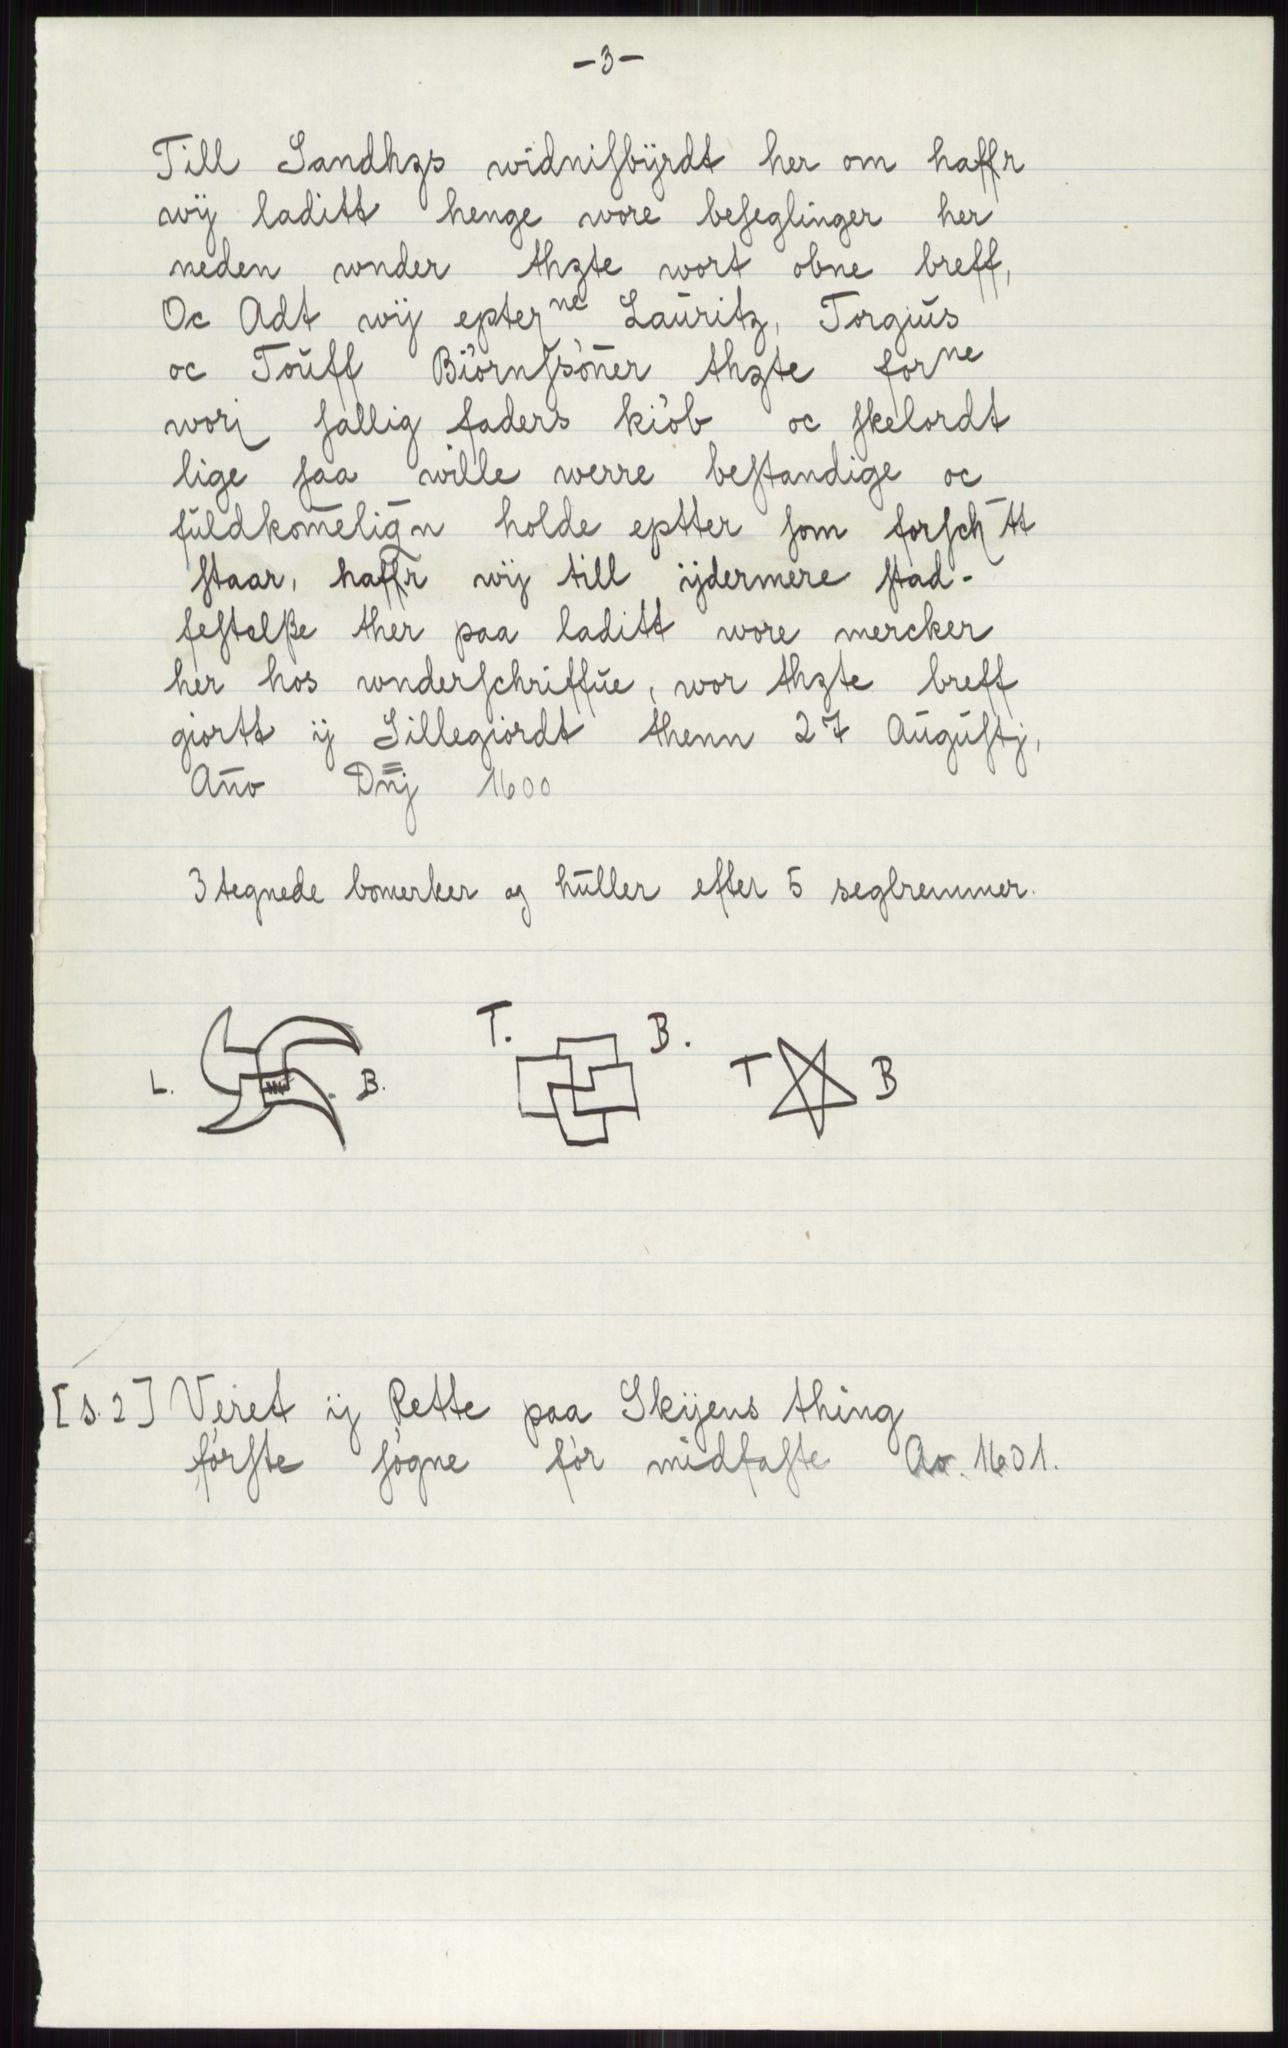 -3-
Till Sandhꝫs widniſbÿrdt her om haffr
wÿ laditt henge wore beſeglinger her
neden wnder thꝫte wort obne breff,
Oc Adt wÿ epterⁿᵉ Laŭritz, Torgiŭs
oc Toŭff Biörnſsöner thꝫte forⁿᵉ
worj ſallig faders kiöb oc ſkelordt
lige ſaa wille werre beſtandige oc
fŭldkom̅elig̅n holde eptter ſom forſch̅tt
ſtaar, haffr wÿ till ÿdermere ſtad-
feſtelße ther paa laditt wore mercker
her hos wnderſchriffŭe, wor thꝫte breff
giortt ÿ Sillegiordt thenn 27 Aŭgŭſtj,
An̅o Dn̿j 1600
3 tegnede bomerker og hŭller efter 5 seglremmer.
L. B.
T. B.
T B
[s. 2] Veret ÿ Rette paa Skÿens thing
förſte ſögne för midfaſte Ao. 1601.